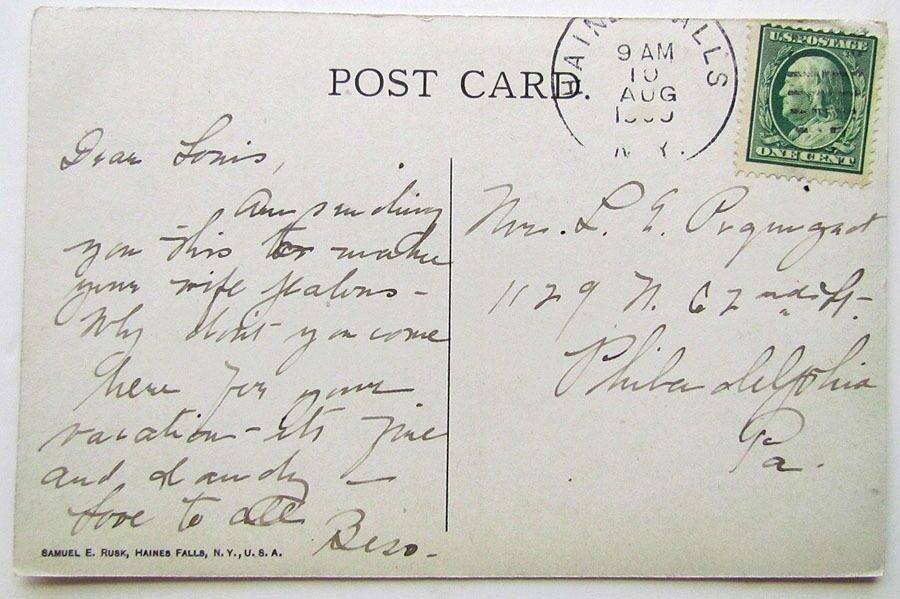 POST CARD.
HAINES FALLS
9 AM
10
AUG
N.Y.
U.S. POSTAGE
ONE CENT
Dear Louis,
Am sending
you this to make
your wife jealous -
Why don't you come
here for your
vacation - its fine
and dandy -
Love to all
Bess -
Mrs. L. E. Pequignot
1129 N. 62nd St.
Philadelphia
Pa.
SAMUEL E. RUSK, HAINES FALLS, N. Y., U. S. A.